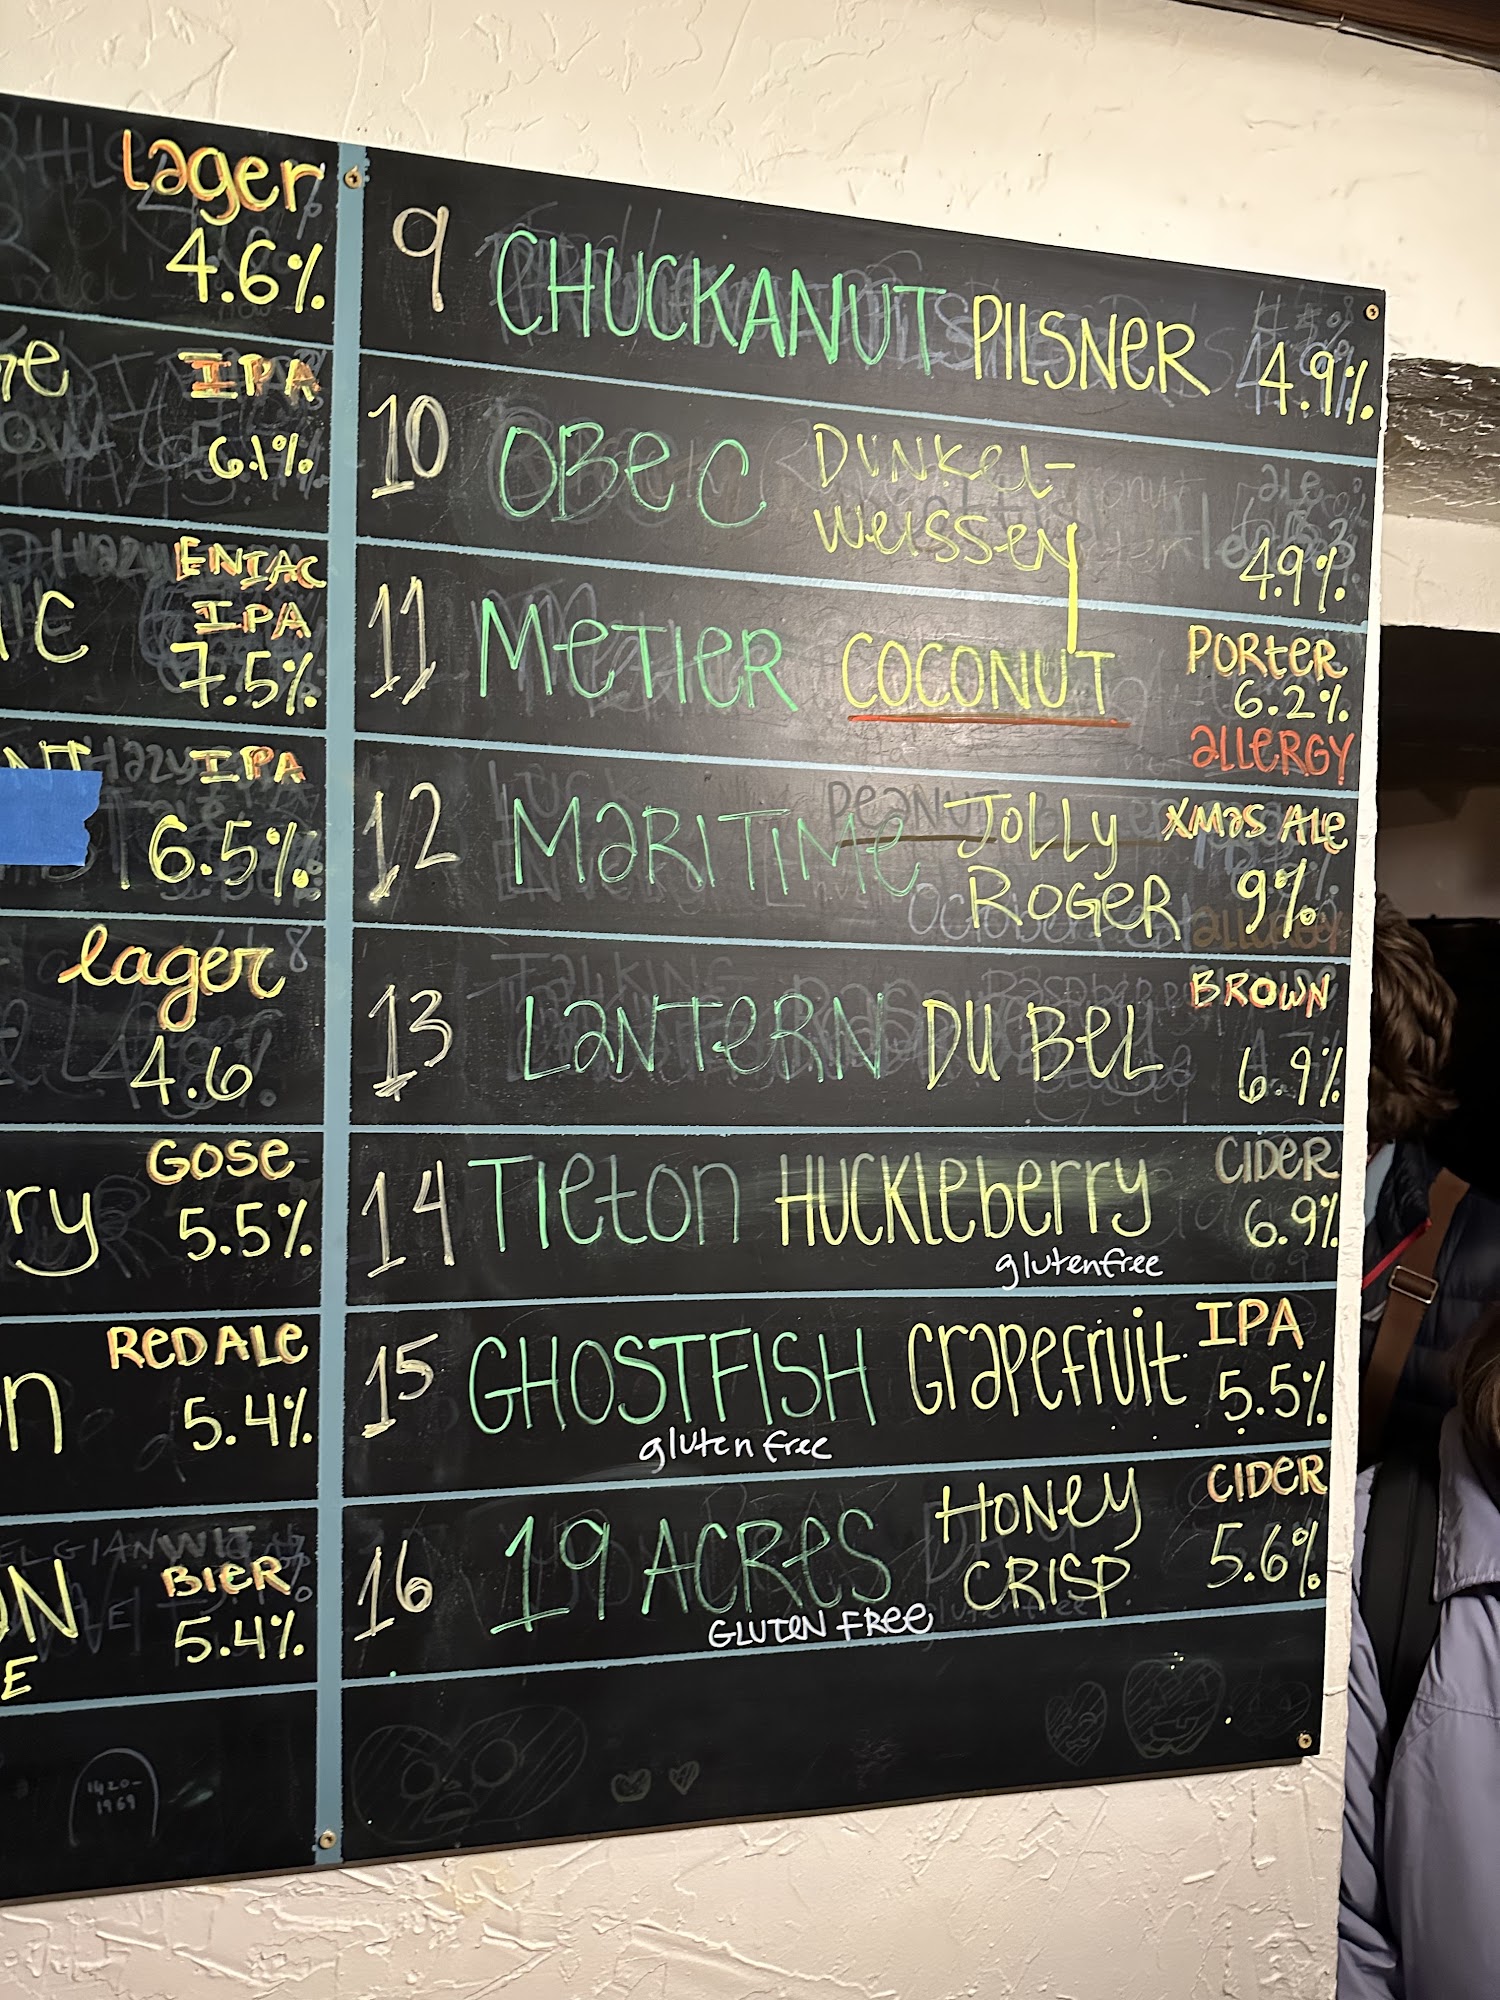 Lager
4.6%
IPA
6.1%
ENIAC
IPA
7.5%
IPA
6.5%
lager
4.6
GOSE
5.5%
ry
RED ALE
5.4%
n
BIER
5.4%
1420-
1969
9 CHUCKANUT PILSNER 4.9%
10 OBEC DUNKEL-
WEISSEN
4.9%
11 METIER COCONUT PORTER
6.2%
ALLERGY
12 MARITIME JOLLY XMAS ALE
ROGER 9%
13 LANTERN DU BEL BROWN
6.9%
14 TIETON HUCKLEBERRY CIDER
6.9%
glutenfree
15 GHOSTFISH Grapefruit IPA
5.5%
gluten free
16 19 ACRES HONEY CIDER
CRISP 5.6%
GLUTEN FREE